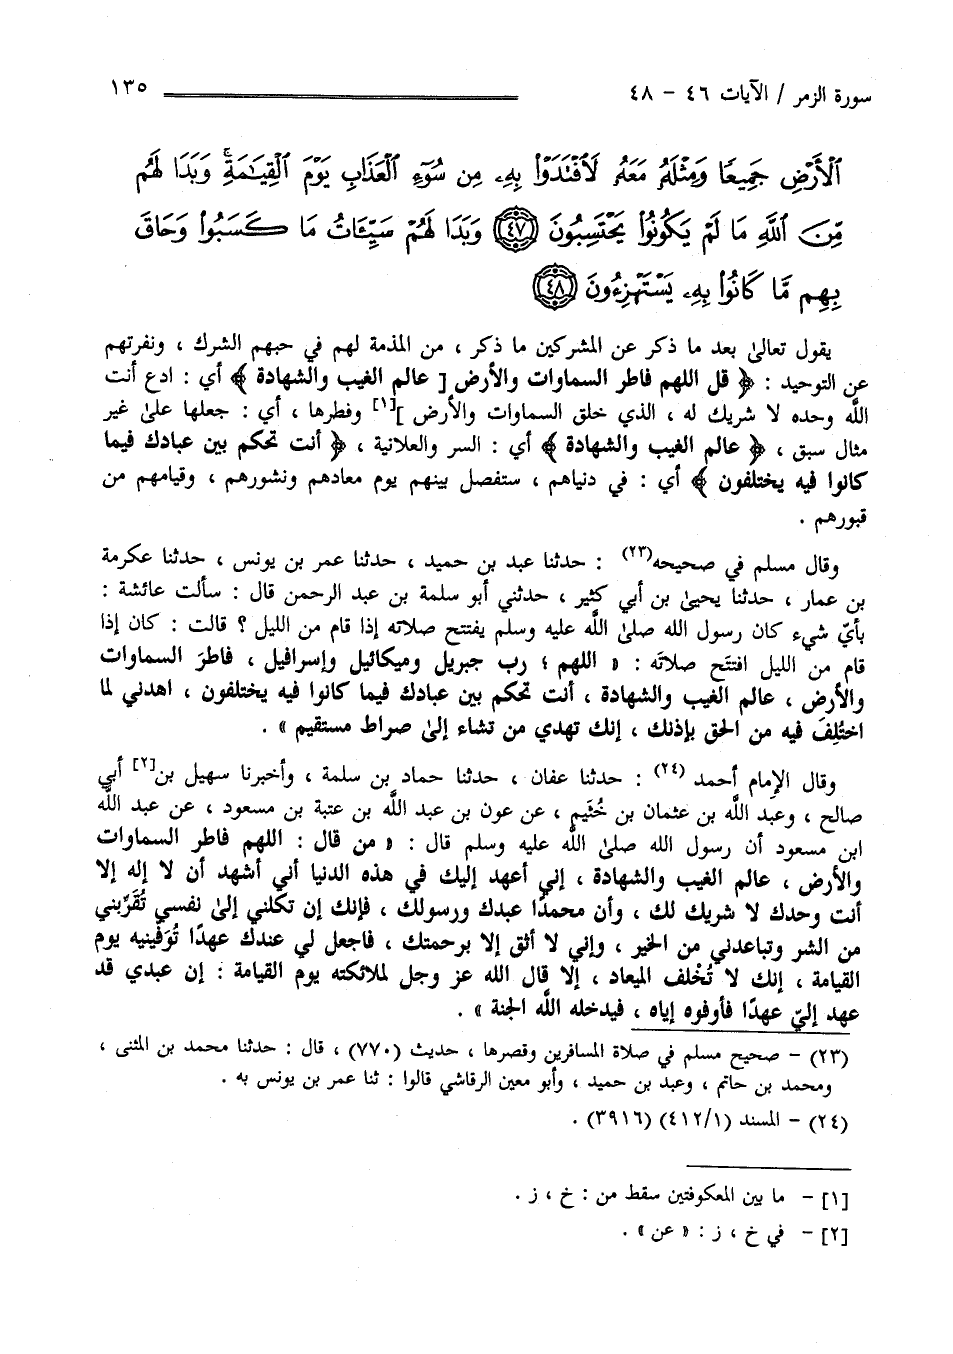 سورة الزمر / الآيات ٤٦ - ٤٨ ١٣٥
ٱلْأَرْضِ جَمِيعًا وَمِثْلَهُۥ مَعَهُۥ لَٱفْتَدَوْا۟ بِهِۦ مِن سُوٓءِ ٱلْعَذَابِ يَوْمَ ٱلْقِيَٰمَةِۚ وَبَدَا لَهُم
مِّنَ ٱللَّهِ مَا لَمْ يَكُونُوا۟ يَحْتَسِبُونَ ٤٧ وَبَدَا لَهُمْ سَيِّـَٔاتُ مَا كَسَبُوا۟ وَحَاقَ
بِهِم مَّا كَانُوا۟ بِهِۦ يَسْتَهْزِءُونَ ٤٨
يقول تعالىٰ بعد ما ذكر عن المشركين ما ذكر ، من المذمة لهم في حبهم الشرك ، ونفرتهم
عن التوحيد : ﴿ قل اللهم فاطر السماوات والأرض [ عالم الغيب والشهادة ﴾ أي : ادع أنت
اللَّه وحده لا شريك له ، الذي خلق السماوات والأرض ][١] وفطرها ، أي : جعلها علىٰ غير
مثال سبق ، ﴿ عالم الغيب والشهادة ﴾ أي : السر والعلانية ، ﴿ أنت تحكم بين عبادك فيما
كانوا فيه يختلفون ﴾ أي : في دنياهم ، ستفصل بينهم يوم معادهم ونشورهم ، وقيامهم من
قبورهم .
وقال مسلم في صحيحه(٢٣) : حدثنا عبد بن حميد ، حدثنا عمر بن يونس ، حدثنا عكرمة
بن عمار ، حدثنا يحيىٰ بن أبي كثير ، حدثني أبو سلمة بن عبد الرحمن قال : سألت عائشة :
بأيّ شيء كان رسول الله صلىٰ اللَّه عليه وسلم يفتتح صلاته إذا قام من الليل ؟ قالت : كان إذا
قام من الليل افتتَح صلاتَه : « اللهم ؛ رب جبريل وميكائيل وإسرافيل ، فاطرَ السماوات
والأرض ، عالم الغيب والشهادة ، أنت تحكم بين عبادك فيما كانوا فيه يختلفون ، اهدني لما
اختُلِفَ فيه من الحق بإذنك ، إنك تهدي من تشاء إلىٰ صراط مستقيم » .
وقال الإمام أحمد (٢٤) : حدثنا عفان ، حدثنا حماد بن سلمة ، وأخبرنا سهيل بن[٢] أبي
صالح ، وعبد اللَّه بن عثمان بن خُثَيم ، عن عون بن عبد اللَّه بن عتبة بن مسعود ، عن عبد اللَّه
ابن مسعود أن رسول الله صلىٰ اللَّه عليه وسلم قال : « من قال : اللهم فاطر السماوات
والأرض ، عالم الغيب والشهادة ، إني أعهد إليك في هذه الدنيا أني أشهد أن لا إله إلا
أنت وحدك لا شريك لك ، وأن محمدًا عبدك ورسولك ، فإنك إن تكلني إلىٰ نفسي تُقَرِّبني
من الشر وتباعدني من الخير ، وإني لا أثق إلا برحمتك ، فاجعل لي عندك عهدًا تُوَفِّينيه يوم
القيامة ، إنك لا تُخْلف الميعاد ، إلا قال الله عز وجل لملائكته يوم القيامة : إن عبدي قد
عهد إليّ عهدًا فأوفوه إياه ، فيدخله اللَّه الجنة » .
(٢٣) - صحيح مسلم في صلاة المسافرين وقصرها ، حديث (٧٧٠) ، قال : حدثنا محمد بن المثنى ،
ومحمد بن حاتم ، وعبد بن حميد ، وأبو معين الرقاشي قالوا : ثنا عمر بن يونس به .
(٢٤) - المسند (٤١٢/١) (٣٩١٦) .
[١] - ما بين المعكوفتين سقط من : خ ، ز .
[٢] - في خ ، ز : « عن » .